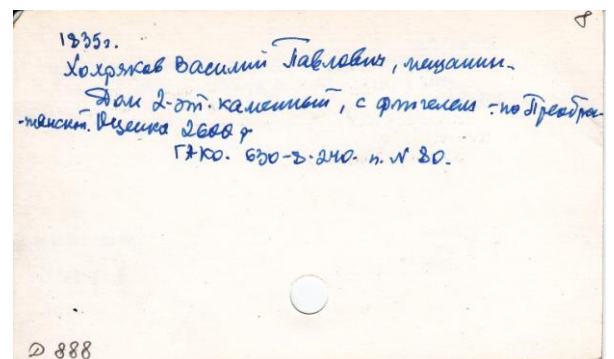 8
1835г.
Хохряков Василий Павлович, мещанин.
Дом 2-эт. каменный, с флигелем - по Преобра-
-женской. Оценка 2600 р
ГАКО. 630-8-240. п. N 80.
D 888